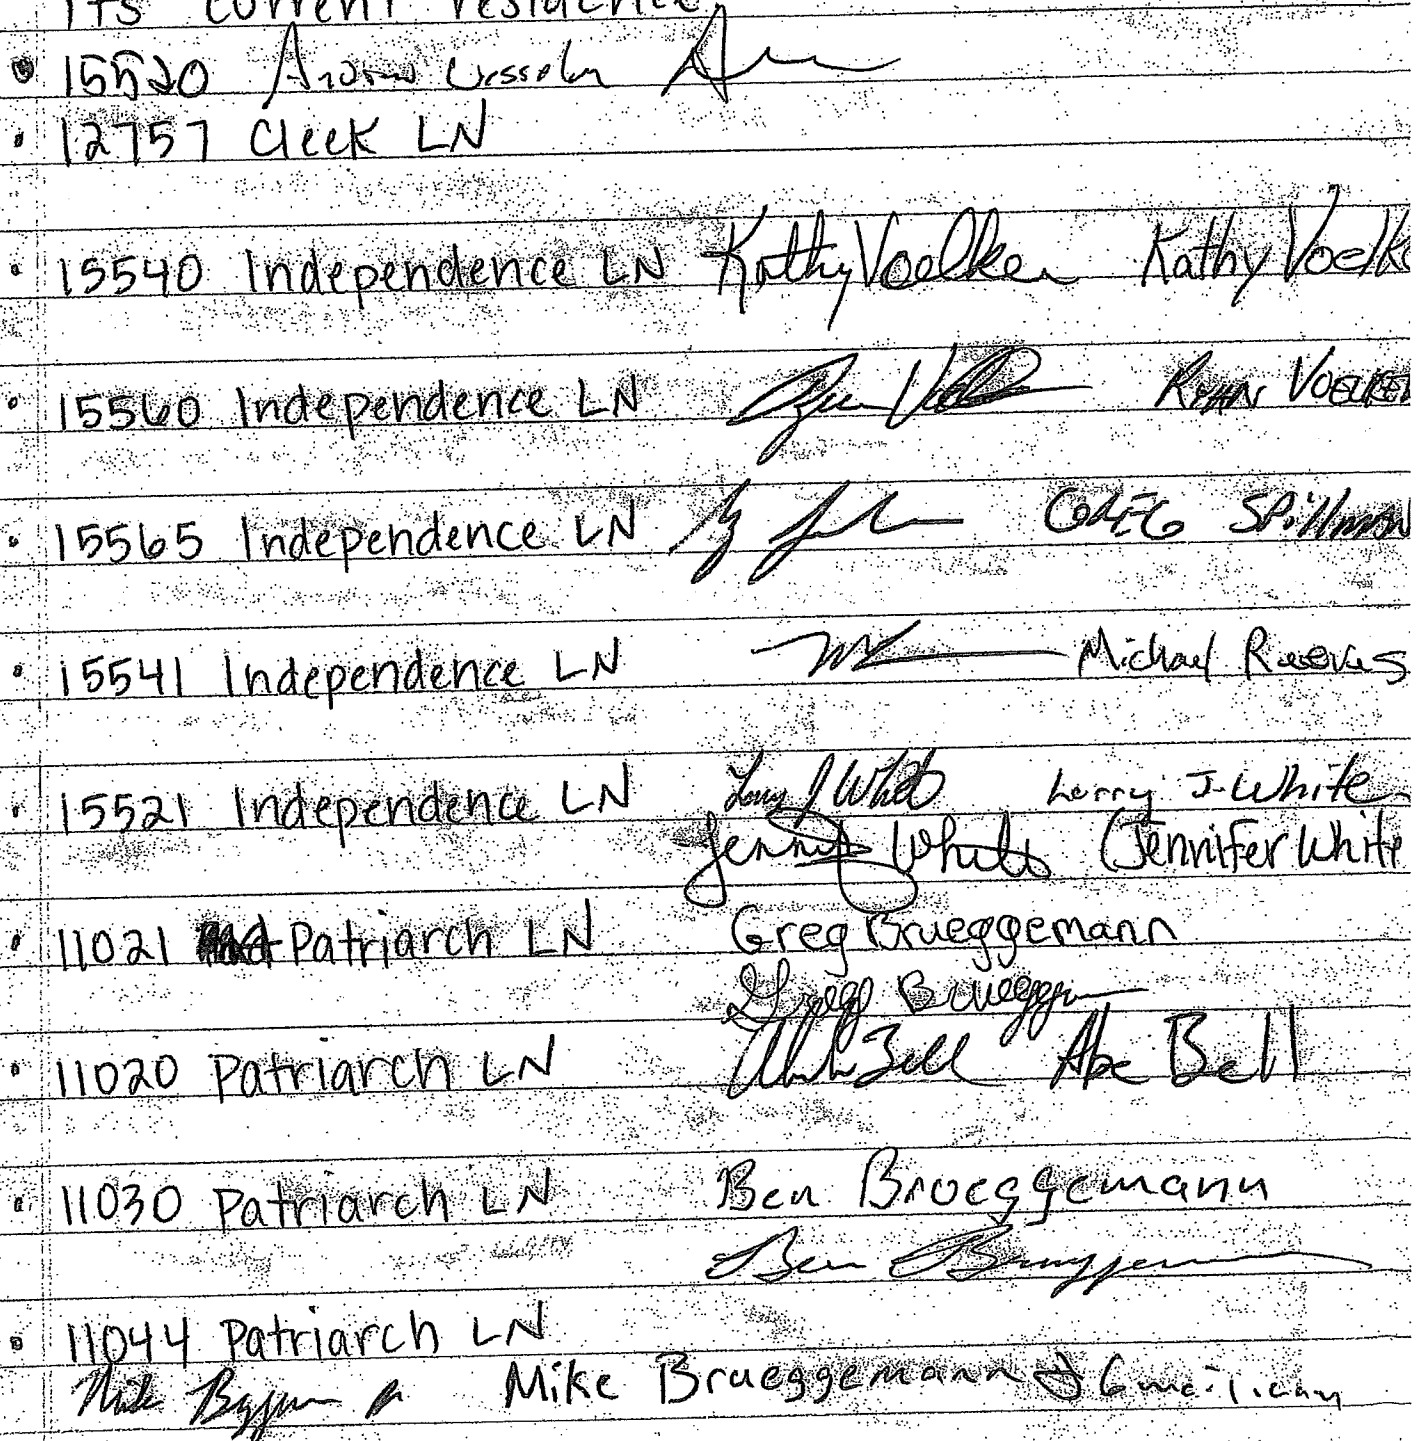 its current residence.
• 15520
• 12757 Cleek LN
• 15540 Independence LN Kathy Voelker Kathy Voelk
• 15560 Independence LN Ryan Voelker
• 15565 Independence LN GREG SPillman
• 15541 Independence LN Michael Reeves
• 15521 Independence LN Larry J White Larry J. White
Jennifer White (Jennifer White
• 11021 Patriarch LN Greg Brueggemann
Gregg Bruegge
• 11020 Patriarch LN Bell Abe Bell
• 11030 Patriarch LN Ben Brueggemann
Ben Brueggemann
• 11044 Patriarch LN
Mike Mike Brueggemann @ Gmail.com